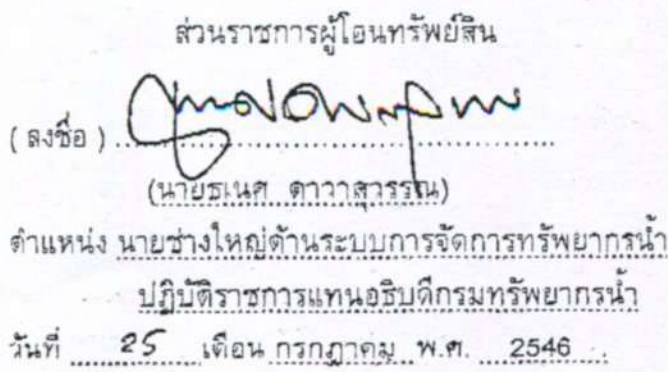 ส่วนราชการผู้โอนทรัพย์สิน
( ลงชื่อ )
(นายธเนศ ดาวาสุวรรณ)
ตำแหน่ง นายช่างใหญ่ด้านระบบการจัดการทรัพยากรน้ำ
ปฏิบัติราชการแทนอธิบดีกรมทรัพยากรน้ำ
วันที่ 25 เดือน กรกฎาคม พ.ศ. 2546